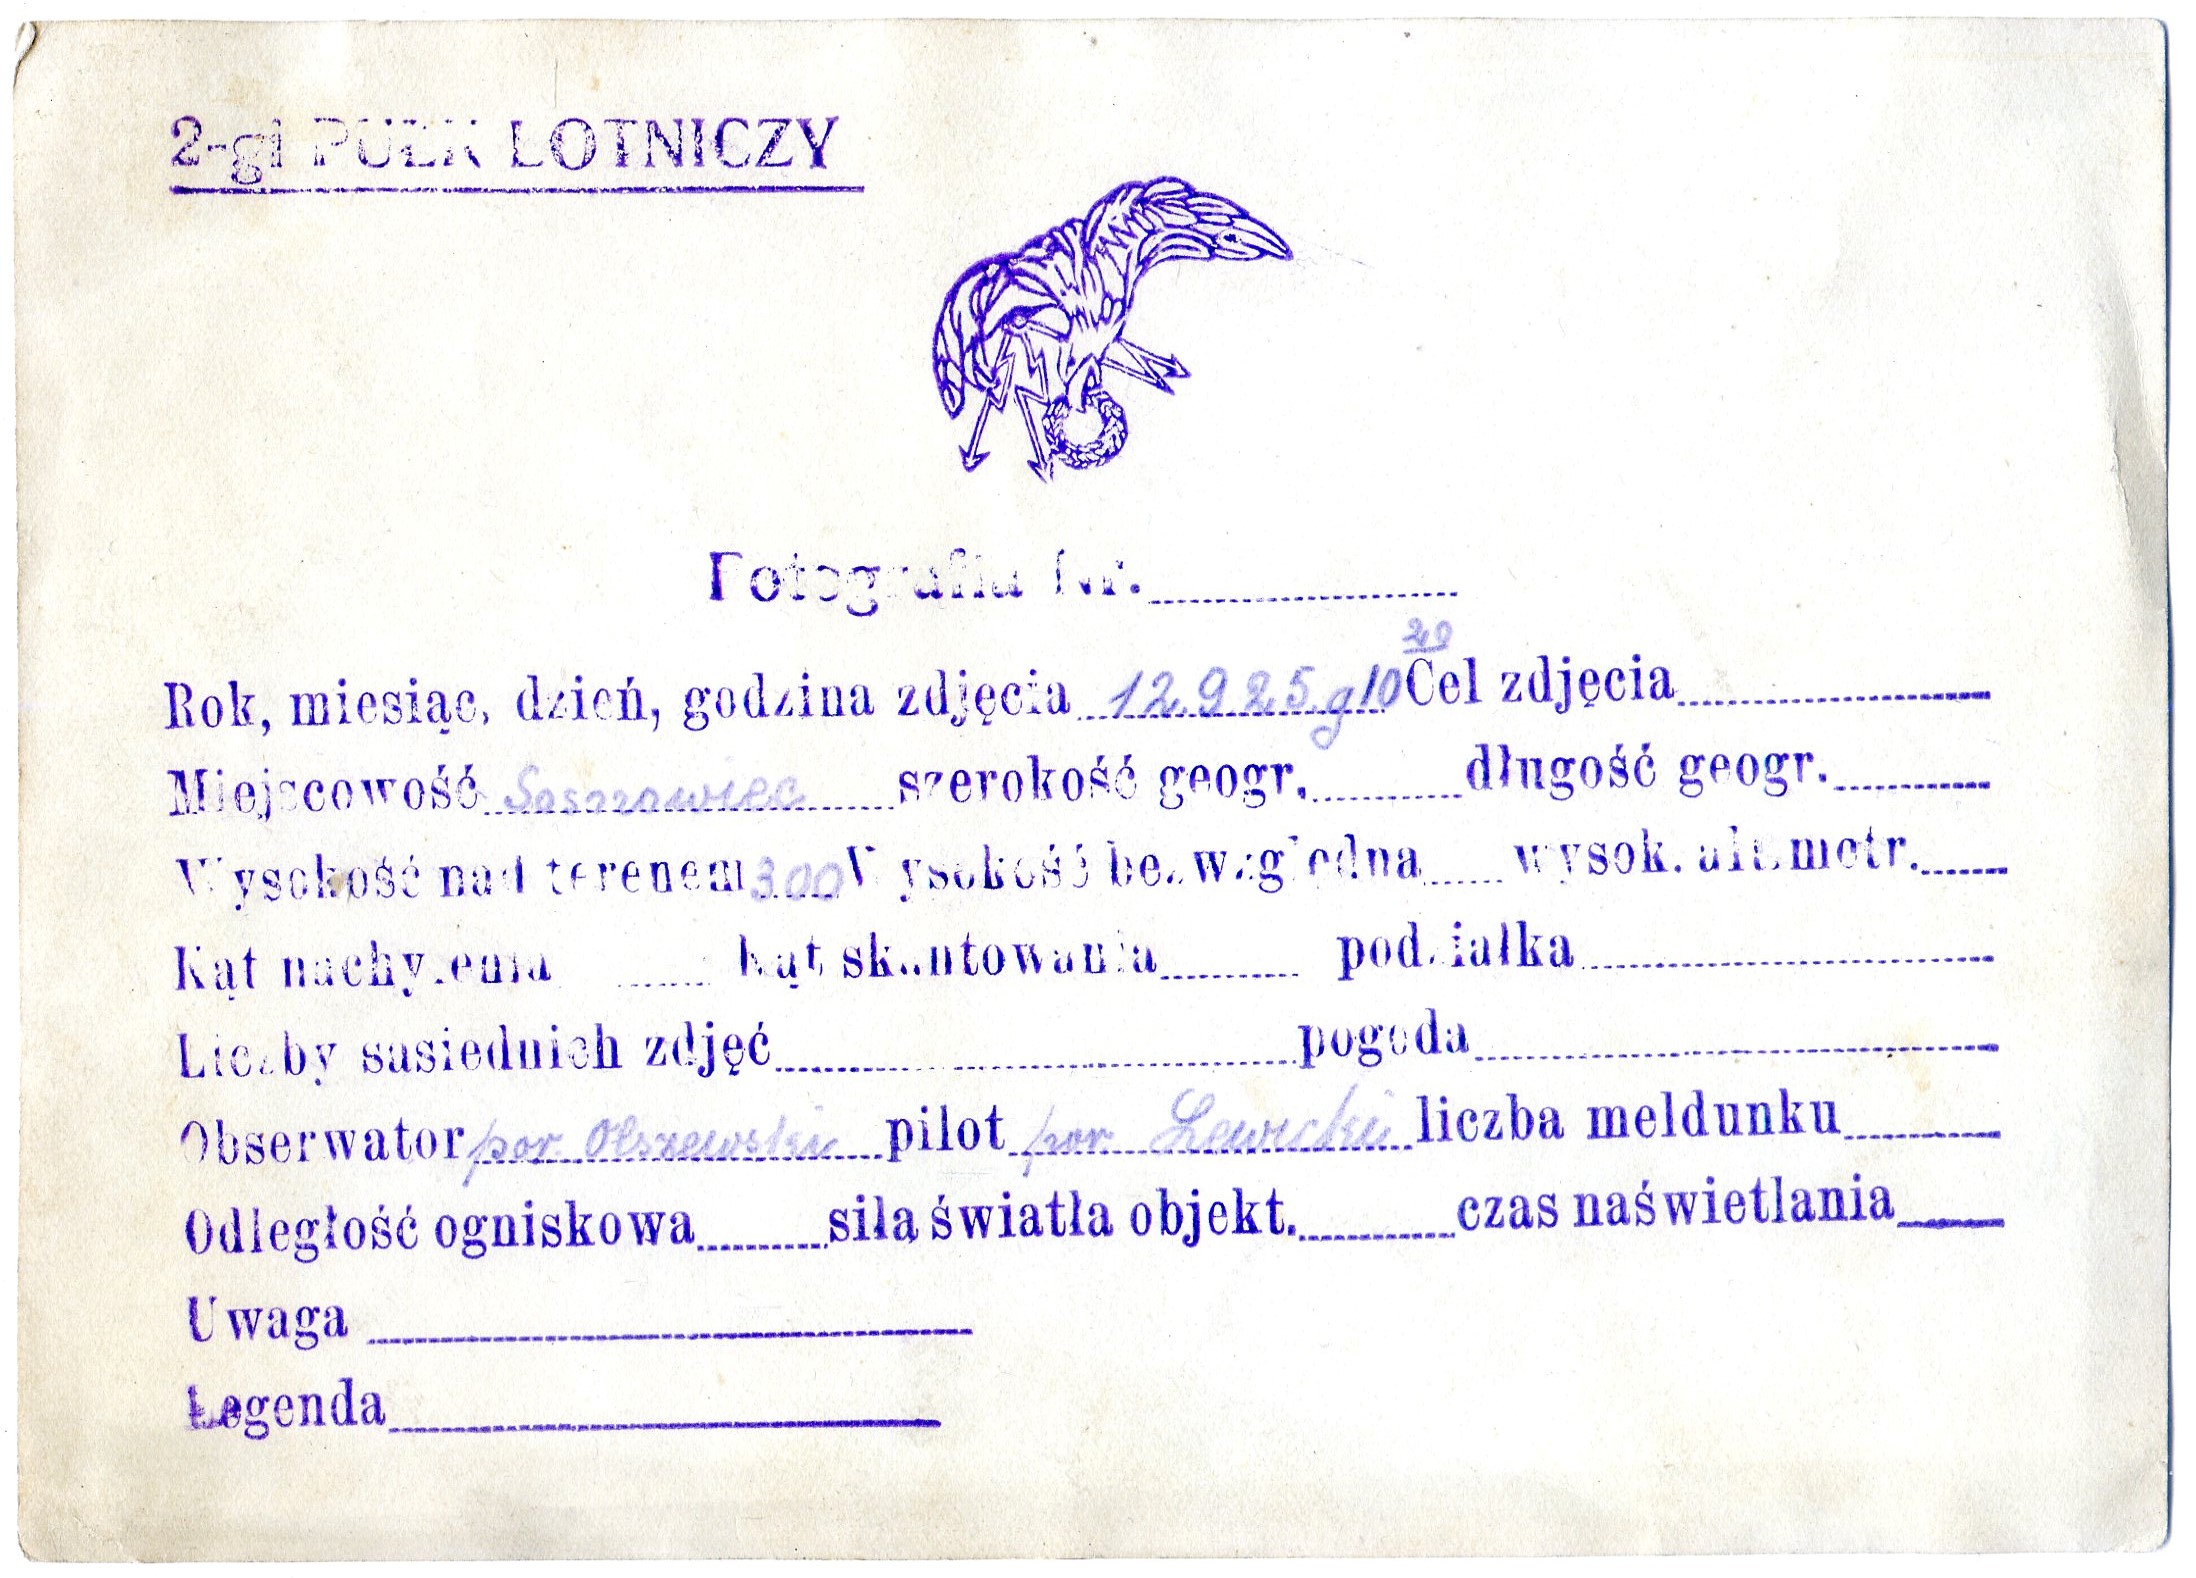 2-gi PUŁK LOTNICZY
Fotografia Nr.
Rok, miesiąc, dzień, godzina zdjęcia 12.9.25.g10²⁰ Cel zdjęcia
Miejscowość Sosnowiec szerokość geogr. długość geogr.
Wysokość nad terenem 300 Wysokość bezwzględna wysok. altimetr.
Kąt nachylenia Kąt skantowania podziałka
Liczby sasiednich zdjęć pogoda
Obserwator por. Olszewski pilot por Lewicki liczba meldunku
Odległość ogniskowa siła światła objekt. czas naświetlania
Uwaga
Legenda